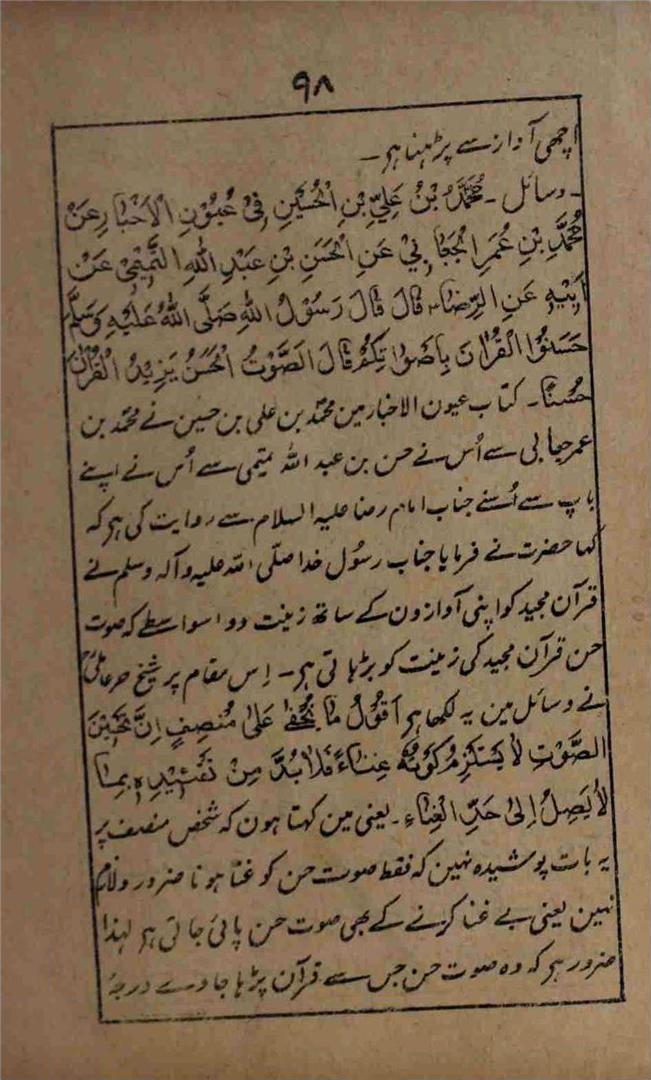 ۹۸
اچھی آواز سے پڑہنا ہر ۔
۔ وسائل ۔ مُحَمَّدُ بْنُ عَلِيِّ بْنِ الْحُسَيْنِ فِيْ عُيُوْنِ الْاَخْبَارِ عَنْ
مُحَمَّدِ بْنِ عُمَرِ الْجِعَابِيْ عَنِ الْحَسَنِ بْنِ عَبْدِ اللهِ التَّمِيْمِيْ عَنْ
اَبِيْهِ عَنِ الرِّضَا قَالَ قَالَ رَسُوْلُ اللهِ صَلَّى اللهُ عَلَيْهِ وَسَلَّمَ
حَسِّنُوا الْقُرْاٰنَ بِاَصْوَاتِكُمْ فَاِنَّ الصَّوْتُ الْحَسَنُ يَزِيْدُ الْقُرْاٰنَ
حُسْنًا ۔ کتاب عیون الاخبار مین محمّد بن علی بن حسین نے محمّد بن
عمر جعابی سے اُس نے حسن بن عبد اللہ تمیمی سے اُس نے اپنے
باپ سے اُسنے جناب امام رضا علیہ السلام سے روایت کی ہر کہ
کہا حضرت نے فرمایا جناب رسُول خدا صلّی اللہ علیہ و آلہ وسلم نے
قرآن مجید کو اپنی آوازون کے ساتھ زینت دو اسواسطے کہ صوت
حسن قرآن مجید کی زینت کو بڑہاتی ہر ۔ اِس مقام پر شیخ حر عاملی
نے وسائل مین یہ لکھا ہر اَقُوْلُ مَا يَخْفٰى عَلٰى مُنْصِفٍ اِنَّ تَحْسِيْنَ
الصَّوْتِ لَا يَسْتَلْزِمُ كَوْنَهٗ غِنَاءً فَلَا بُدَّ مِنْ تَقْيِيْدِهٖ بِمَا
لَا يَصِلُ اِلٰى حَدِّ الْغِنَاءِ ۔ یعنی مین کہتا ہون کہ شخص منصف پر
یہ بات پوشیدہ نہین کہ فقط صوت حسن کو غنا ہونا ضرور و لازم
نہین یعنی بے غنا کرنے کے بھی صوت حسن پائی جاتی ہر لہذا
ضرور ہر کہ وہ صوت حسن جس سے قرآن پڑہا جاوے درجۂ